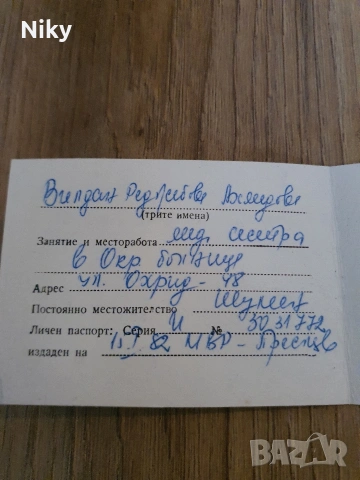 Niky
Вилдан
(трите имена)
Занятие и месторабота мед. сестра
в Окр болница
Адрес ул. Охрид - 48
Постоянно местожителство Шумен
Личен паспорт: Серия И № 3031772
издаден на 82 МВР - Преслав
BAZAR
bg